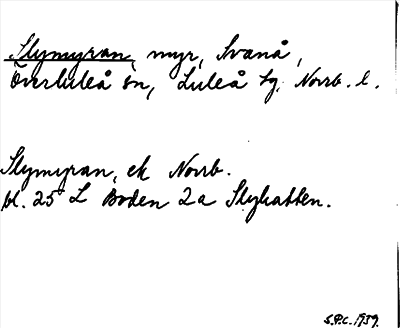 Slymyran, myr, Svanå,
Överluleå sn, Luleå tg. Norrb. l.
Slymyran, ek Norrb.
bl. 25 L Boden 2a Slyhatten.
S.P.C. 1939.